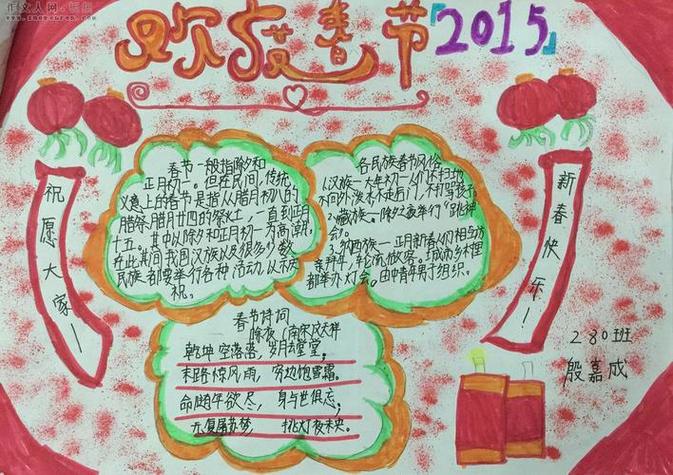 作文人网·畅想
欢度春节「2015」
祝愿大家！
新春快乐！
春节一般指除夕和
正月初一。但在民间，传统
义意上的春节是指从腊月初八的
腊祭腊月廿四的祭灶，一直到正月
十五，其中以除夕和正月初一为高潮。
在此其间我国汉族以及很多少数
民族都要举行各种活动以示庆
祝。
各民族春节风俗
1.汉族一大年初一人们还不扫地
不向外泼水不走后门，不打骂孩子
2.藏族。除夕之夜举行"跳神
会"
3.纳西族一正月新春人们相与访
亲拜年，轮流做客。成功乡村裡
都举办灯会。由中青年男子组织。
春节诗词
除夜（南宋文天祥
乾坤空落落，岁月去堂堂；
末路惊风雨，穷边饱雪霜。
命随年欲尽，身与世俱忘；
无复屠苏梦，挑灯夜未央。
280班
殷嘉成